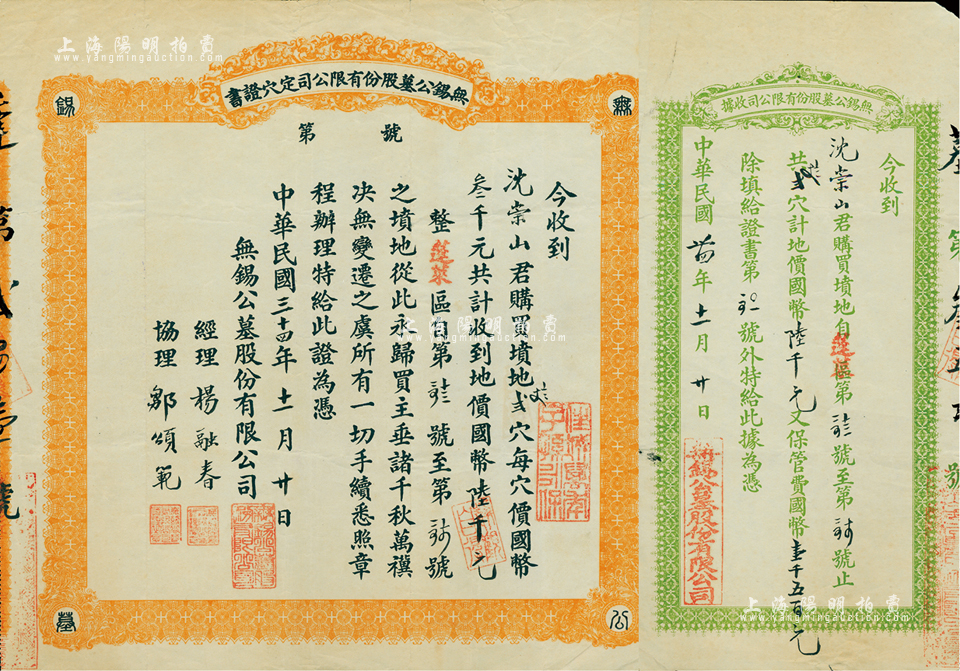 上海陽明拍賣
www.yangmingauction.com
無錫公墓股份有限公司收據
今收到
沈崇山君購買墳地自蓬萊區第 號至第 號止
共弍穴計地價國幣陸千元又保管費國幣壹千五百元
除填給證書第 號外特給此據為憑
中華民國卅四年十一月廿日
無錫公墓股份有限公司
無錫公墓股份有限公司定穴證書
無
錫
公
墓
第 號
今收到
沈崇山君購買墳地弍穴每穴價國幣
叁千元共計收到地價國幣陸千元
整蓬萊區自第 號至第 號
之墳地從此永歸買主垂諸千秋萬禩
決無變遷之虞所有一切手續悉照章
程辦理特給此證為憑
中華民國三十四年十一月廿日
無錫公墓股份有限公司
經理 楊融春
協理 鄒頌範
佳城鬱鬱
子孫永保
上海陽明拍賣
www.yangmingauction.com
上海陽明拍賣
www.yangmingauction.com